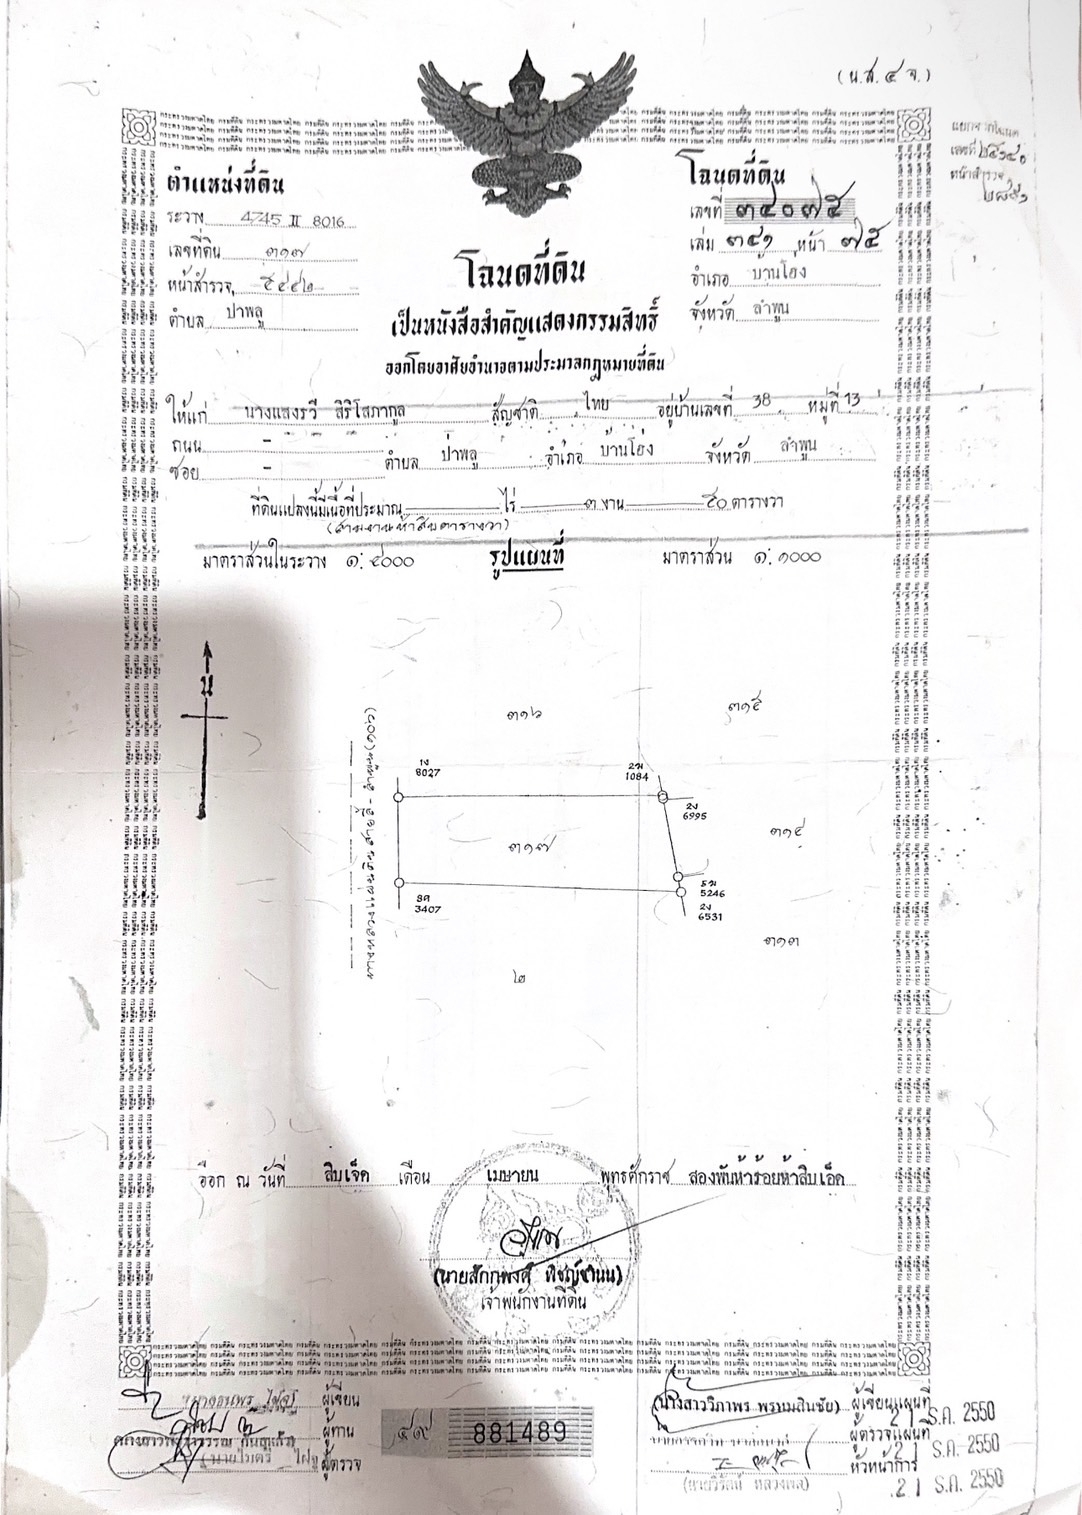 (น.ส. ๔ จ.)
แยกจากโฉนด
เลขที่
หน้าสำรวจ
ตำแหน่งที่ดิน
ระวาง 4745 II 8016
เลขที่ดิน ๓๑๗
หน้าสำรวจ ๕๔๔๒
ตำบล ป่าพลู
โฉนดที่ดิน
เลขที่ ๓๔๐๗๕
เล่ม ๓๔๑ หน้า ๗๕
อำเภอ บ้านโฮ่ง
จังหวัด ลำพูน
โฉนดที่ดิน
เป็นหนังสือสำคัญแสดงกรรมสิทธิ์
ออกโดยอาศัยอำนาจตามประมวลกฎหมายที่ดิน
ให้แก่ นางแสงรวี สิริโสภากูล สัญชาติ ไทย อยู่บ้านเลขที่ 38 หมู่ที่ 13
ถนน -
ซอย - ตำบล ป่าพลู อำเภอ บ้านโฮ่ง จังหวัด ลำพูน
ที่ดินแปลงนี้มีเนื้อที่ประมาณ ไร่ ๓ งาน ๕๐ ตารางวา
(สามงานห้าสิบตารางวา)
มาตราส่วนในระวาง ๑:๔๐๐๐ รูปแผนที่ มาตราส่วน ๑:๑๐๐๐
น
๓๑๖ ๓๑๕
ทางหลวงแผ่นดินสายลี้ - ลำพูน (๑๐๖)
1ง
8027
2ฆ
1084
2ง
6995
๓๑๗ ๓๑๔
8ค
3407
5ฆ
5246
2ง
6531
๓๑๓
๒
ออก ณ วันที่ สิบเจ็ด เดือน เมษายน พุทธศักราช สองพันห้าร้อยห้าสิบเอ็ด
เจ้าพนักงานที่ดิน
ผู้เขียน
ผู้ทาน
ผู้ตรวจ
๔๙ 881489
(นางสาววิภาพร พรหมสินชัย) ผู้เขียนแผนที่
21 ธ.ค. 2550
ผู้ตรวจแผนที่
21 ธ.ค. 2550
หัวหน้าการ
21 ธ.ค. 2550